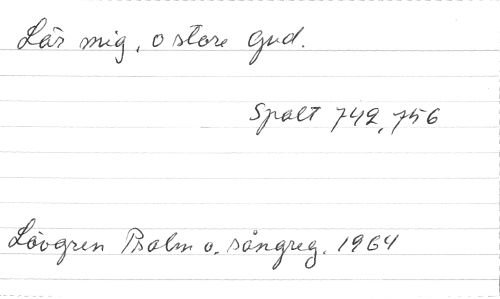 Lär mig, o store Gud.
Spalt 742, 756
Lövgren Psalm o. sångreg. 1964